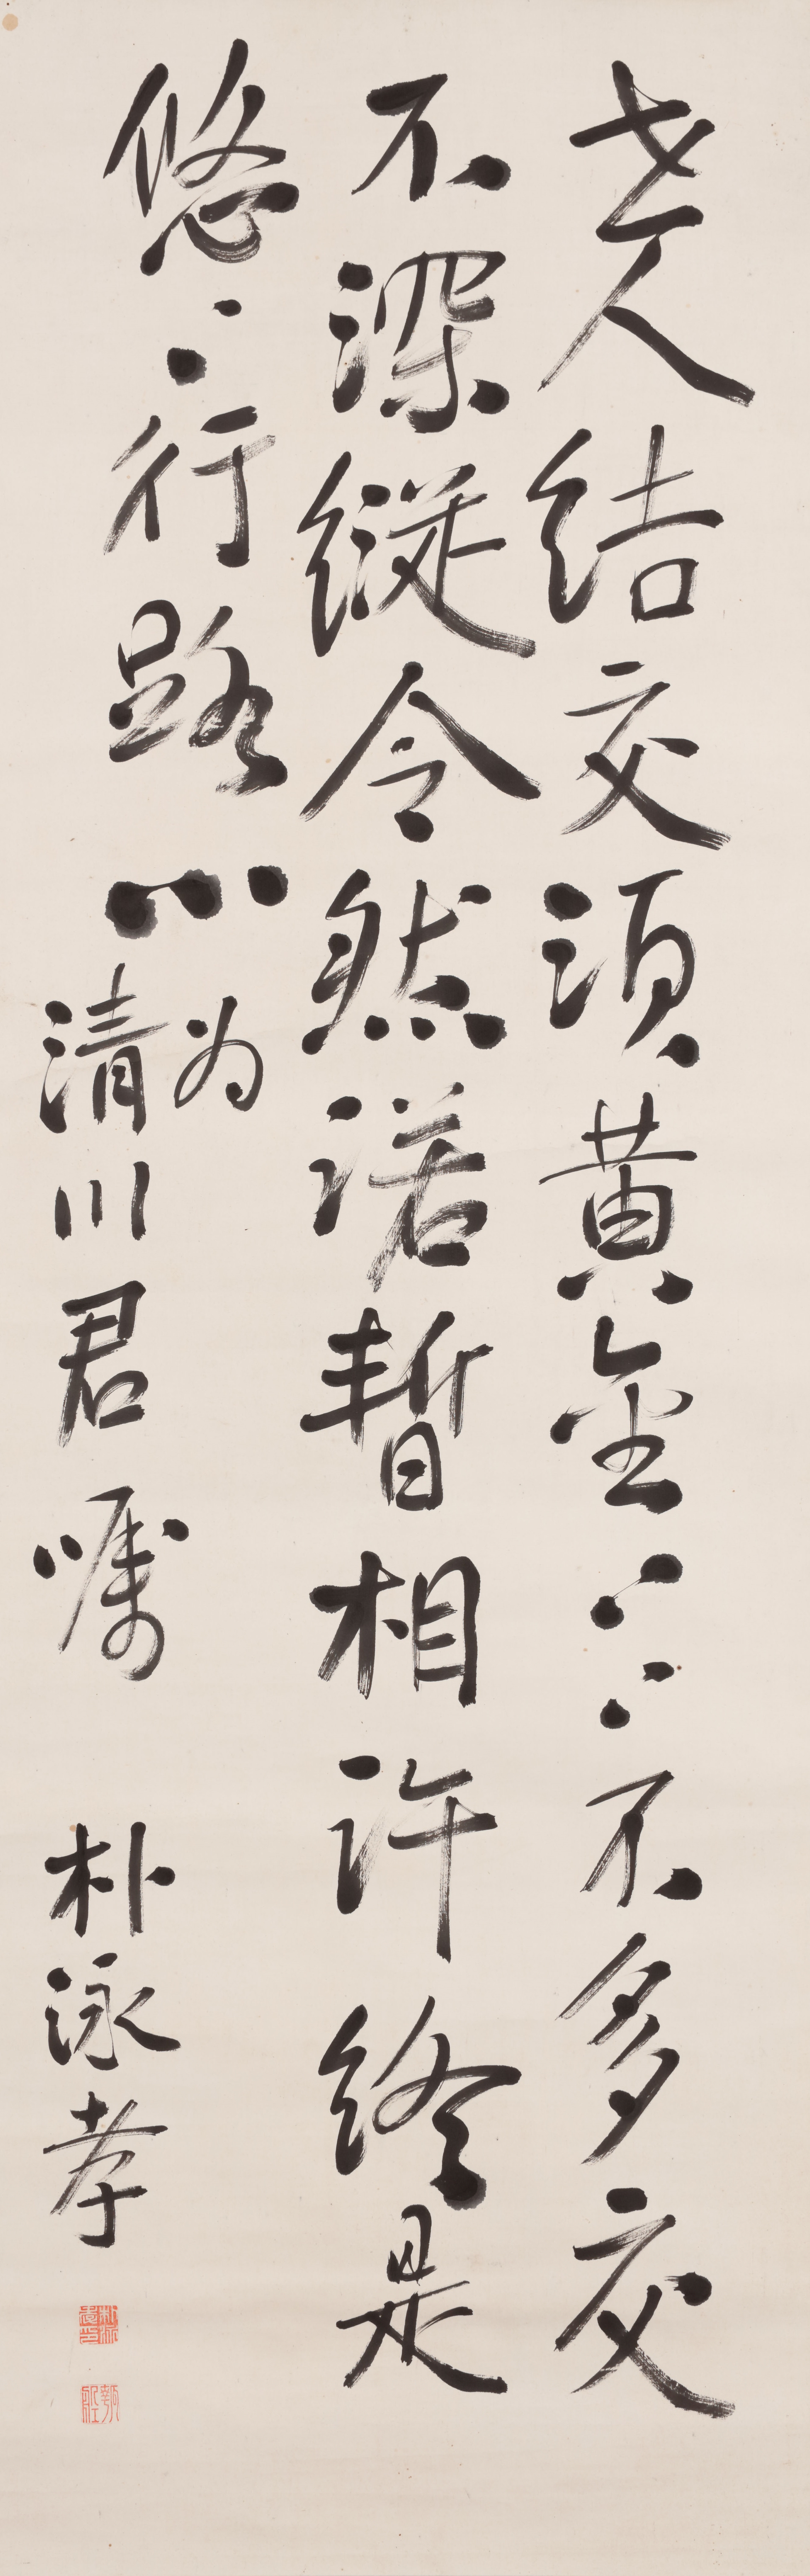 世人結交須黄金〻〻不多交
不深縱令然諾暫相許終是
悠〻行路心
为
清川君嘱
朴泳孝